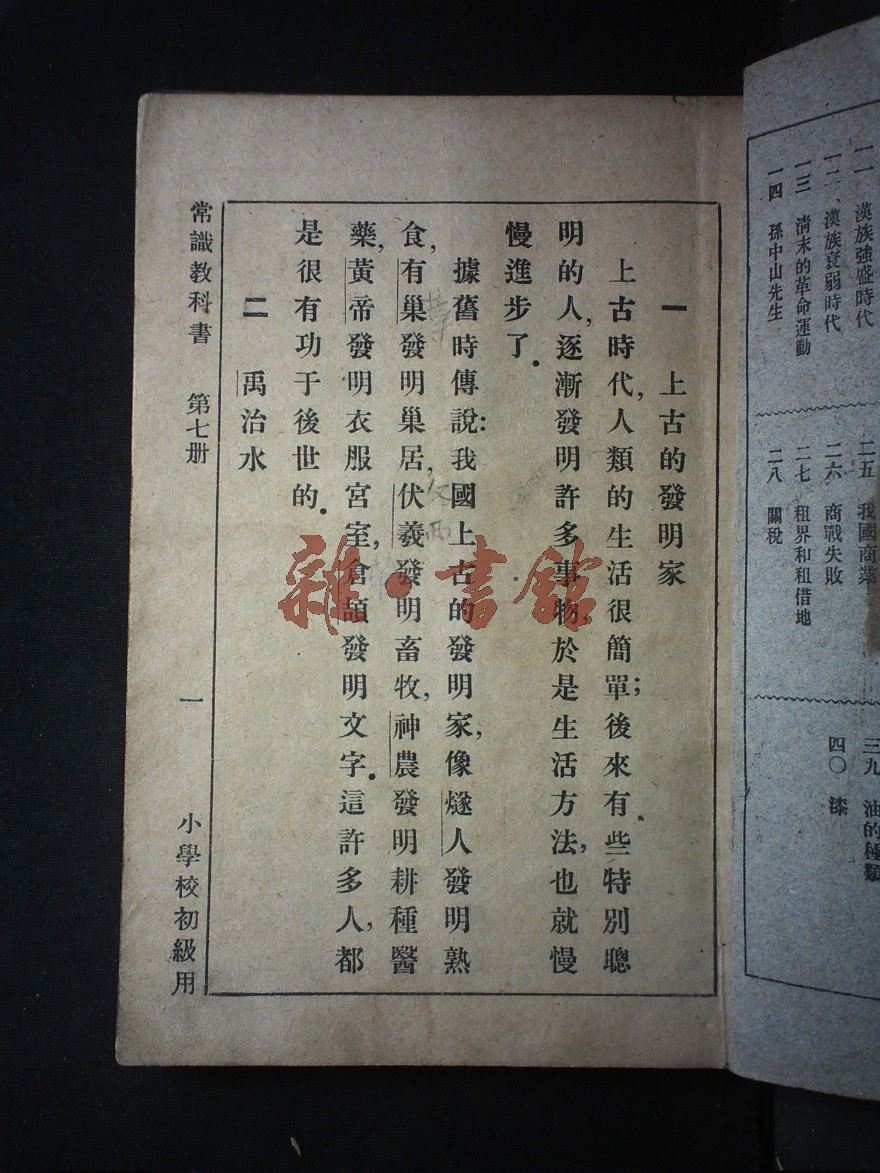 一一　漢族強盛時代
一二、漢族衰弱時代
一三　清末的革命運動
一四　孫中山先生
二五　我國商業
二六　商戰失敗
二七　租界和租借地
二八　關稅
三九　油的種類
四〇　漆
一　上古的發明家
上古時代，人類的生活很簡單；後來有些特別聰
明的人，逐漸發明許多事物，於是生活方法，也就慢
慢進步了．
據舊時傳說：我國上古的發明家，像燧人發明熟
食，有巢發明巢居，伏羲發明畜牧，神農發明耕種醫
藥，黃帝發明衣服宮室，倉頡發明文字．這許多人，都
是很有功于後世的．
二　禹治水
常識教科書　第七册　一　小學校初級用
雜·書館